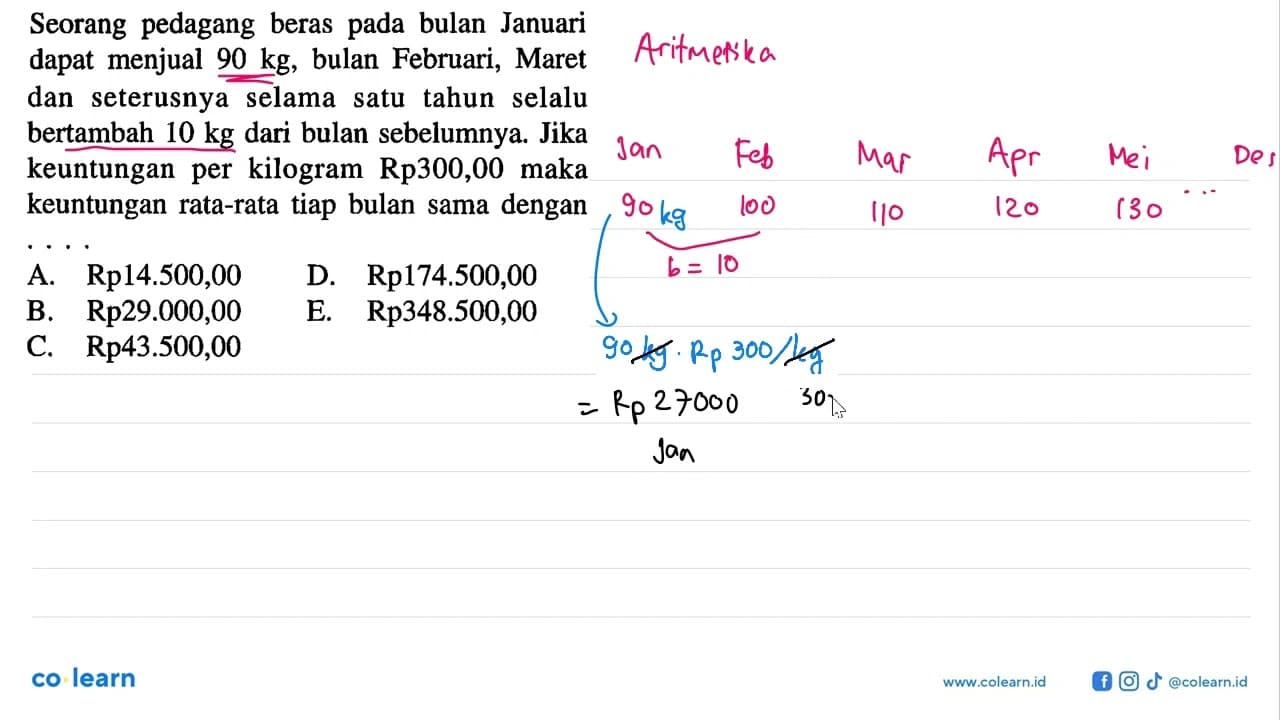 Seorang pedagang beras pada bulan Januari
dapat menjual 90 kg, bulan Februari, Maret
dan seterusnya selama satu tahun selalu
bertambah 10 kg dari bulan sebelumnya. Jika
keuntungan per kilogram Rp300,00 maka
keuntungan rata-rata tiap bulan sama dengan
. . . .
A. Rp14.500,00 D. Rp174.500,00
B. Rp29.000,00 E. Rp348.500,00
C. Rp43.500,00
Aritmetika
Jan Feb Mar Apr Mei Des
90 kg 100 110 120 130 ...
b = 10
90 kg . Rp 300/kg
= Rp 27000 30
Jan
co learn
www.colearn.id @colearn.id